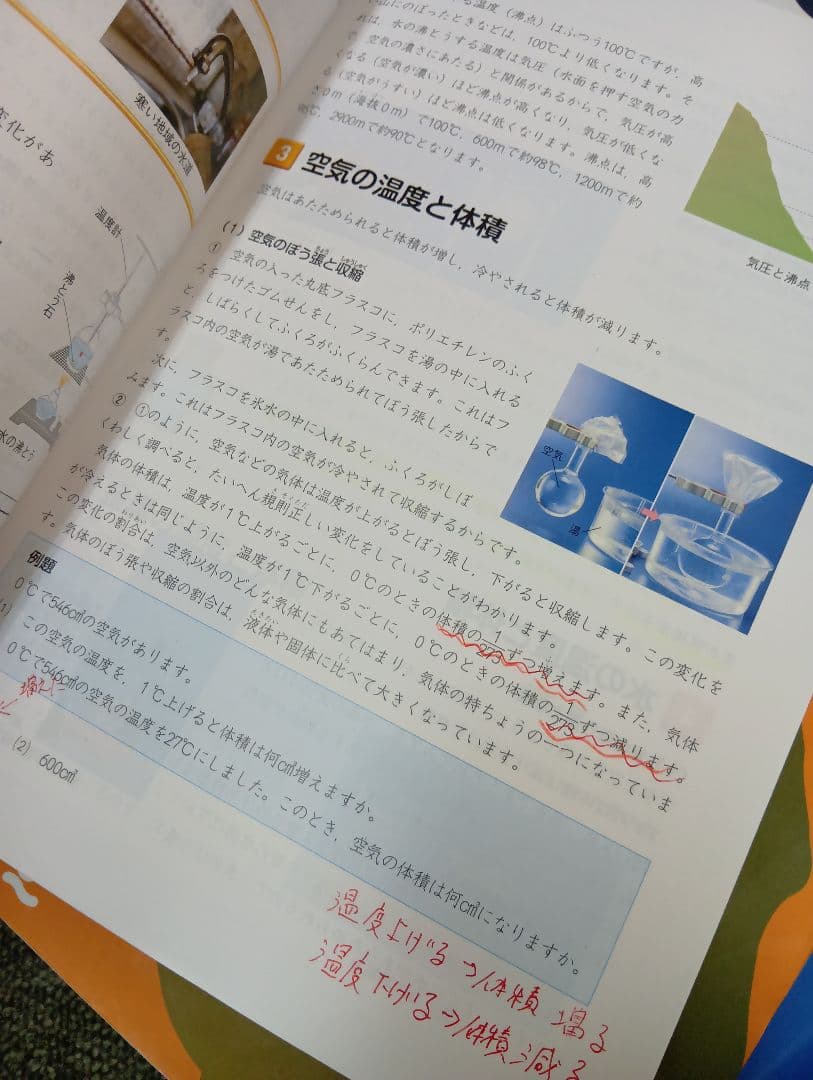 変化があ
寒い地域の水道
温度計
沸とう石
水の沸とう
る温度(沸点)はふつう100℃ですが,高
い山にのぼったときなどは,100℃より低くなります。そ
れは,水の沸とうする温度は気圧(水面を押す空気の力
で,空気の濃さにあたる)と関係があるからで,気圧が高
くなる(空気が濃い)ほど沸点が高くなり,気圧が低くな
る(空気がうすい)ほど沸点は低くなります。沸点は,高
さ0m(海抜0m)で100℃,600mで約98℃,1200mで約
96℃,2900mで約90℃となります。
気圧と沸点
3 空気の温度と体積
空気はあたためられると体積が増し,冷やされると体積が減ります。
(1) 空気のぼう張と収縮
① 空気の入った丸底フラスコに,ポリエチレンのふく
ろをつけたゴムせんをし,フラスコを湯の中に入れる
と,しばらくしてふくろがふくらんできます。これはフ
ラスコ内の空気が湯であたためられてぼう張したからで
す。
次に,フラスコを氷水の中に入れると,ふくろがしぼ
みます。これはフラスコ内の空気が冷やされて収縮するからです。
空気
湯
② ①のように,空気などの気体は温度が上がるとぼう張し,下がると収縮します。この変化を
くわしく調べると,たいへん規則正しい変化をしていることがわかります。
気体の体積は,温度が1℃上がるごとに,0℃のときの体積の1/273ずつ増えます。また,気体
が冷えるときは同じように,温度が1℃下がるごとに,0℃のときの体積の1/273ずつ減ります。
この変化の割合は,空気以外のどんな気体にもあてはまり,気体の特ちょうの一つになっていま
す。気体のぼう張や収縮の割合は,液体や固体に比べて大きくなっています。
例題
0℃で546cm³の空気があります。
この空気の温度を,1℃上げると体積は何cm³増えますか。
0℃で546cm³の空気の温度を27℃にしました。このとき,空気の体積は何cm³になりますか。
(2) 600cm³
温度上げる→体積増る
温度下げる→体積減る